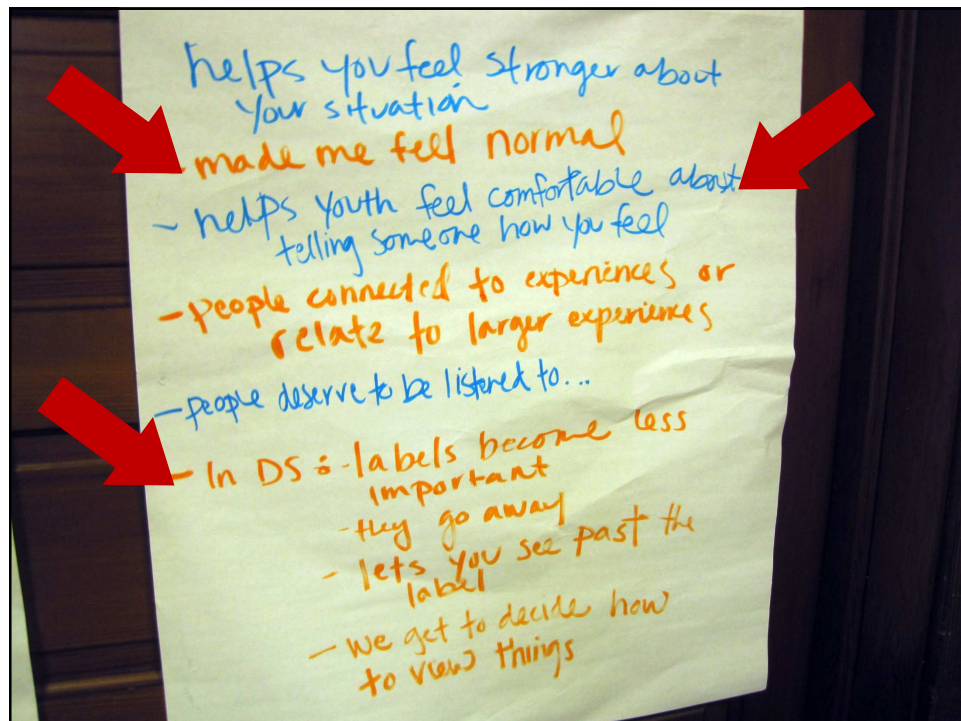 helps you feel stronger about
your situation
- made me feel normal
- helps youth feel comfortable about
telling someone how you feel
- people connected to experiences or
relate to larger experiences
- people deserve to be listened to...
- In DS: - labels become less
important
- they go away
- lets you see past the
label
- we get to decide how
to view things